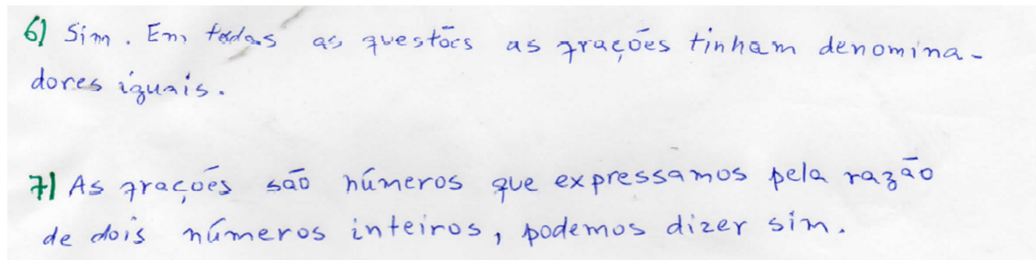 6) Sim. Em todas as questões as frações tinham denomina-
dores iguais.
7) As frações são números que expressamos pela razão
de dois números inteiros, podemos dizer sim.